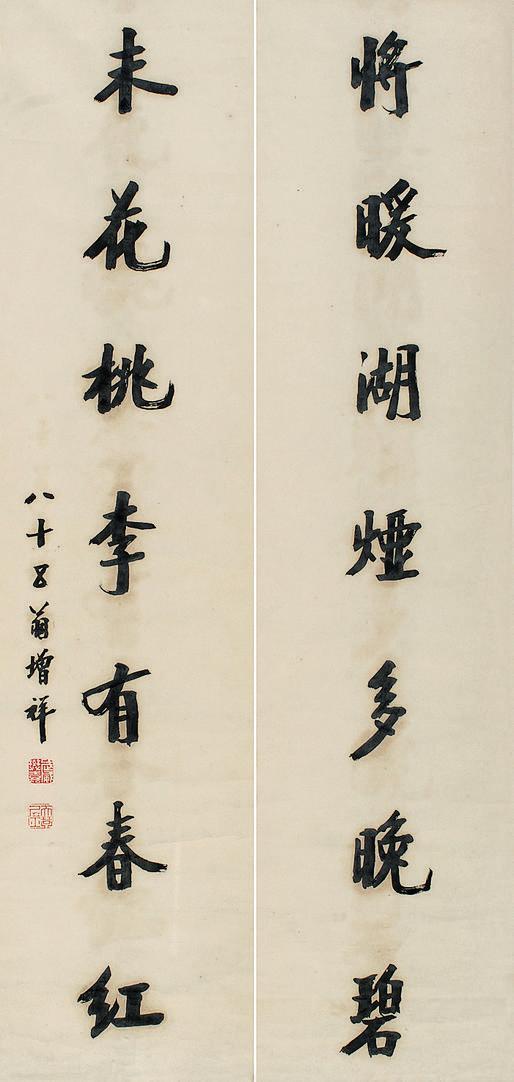 将暖湖煙多晚碧
未花桃李有春红
八十五翁增祥